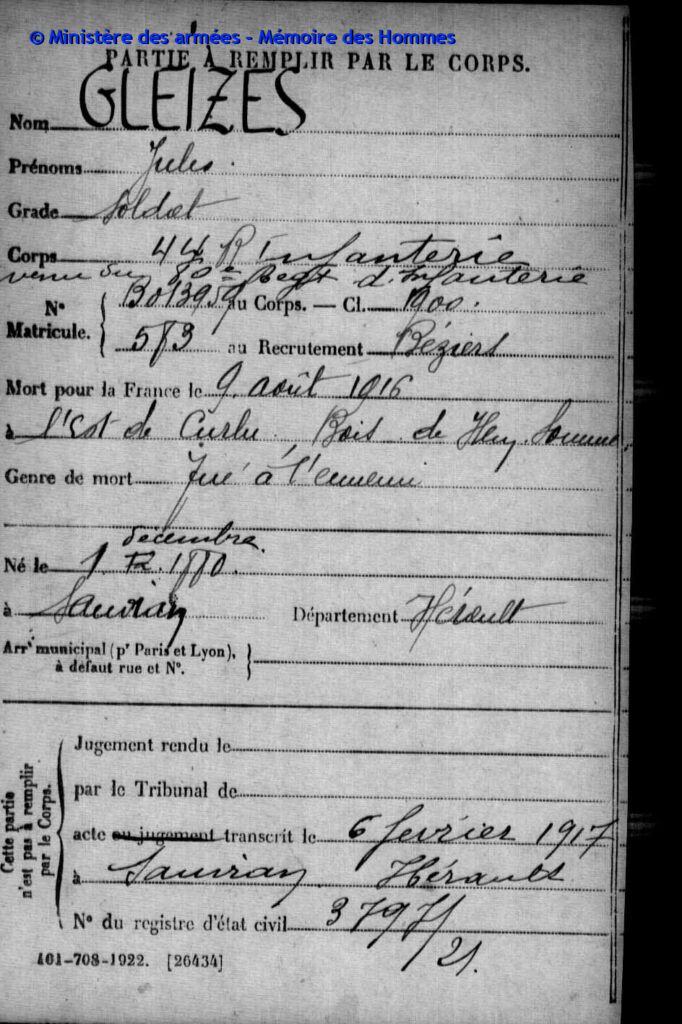 © Ministère des armées - Mémoire des Hommes
PARTIE À REMPLIR PAR LE CORPS.
Nom GLEIZES
Prénoms Jules.
Grade Soldat
Corps 44 R Infanterie
venu du 80e Regt d'Infanterie
N° Matricule. { au Corps. — Cl. 1900.
583 au Recrutement Béziers
Mort pour la France le 9 août 1916
à l'Est de Curlu, Bois de Hem, Somme
Genre de mort Tué à l'ennemi
décembre.
Né le 1 12. 1880.
à Sauvian Département Hérault
Arrt municipal (pr Paris et Lyon),
à défaut rue et N°.
Cette partie
n'est pas à remplir
par le Corps.
Jugement rendu le
par le Tribunal de
acte ou jugement transcrit le 6 février 1917
à Sauvian Hérault
N° du registre d'état civil 3797/
21.
101-708-1922. [26434]